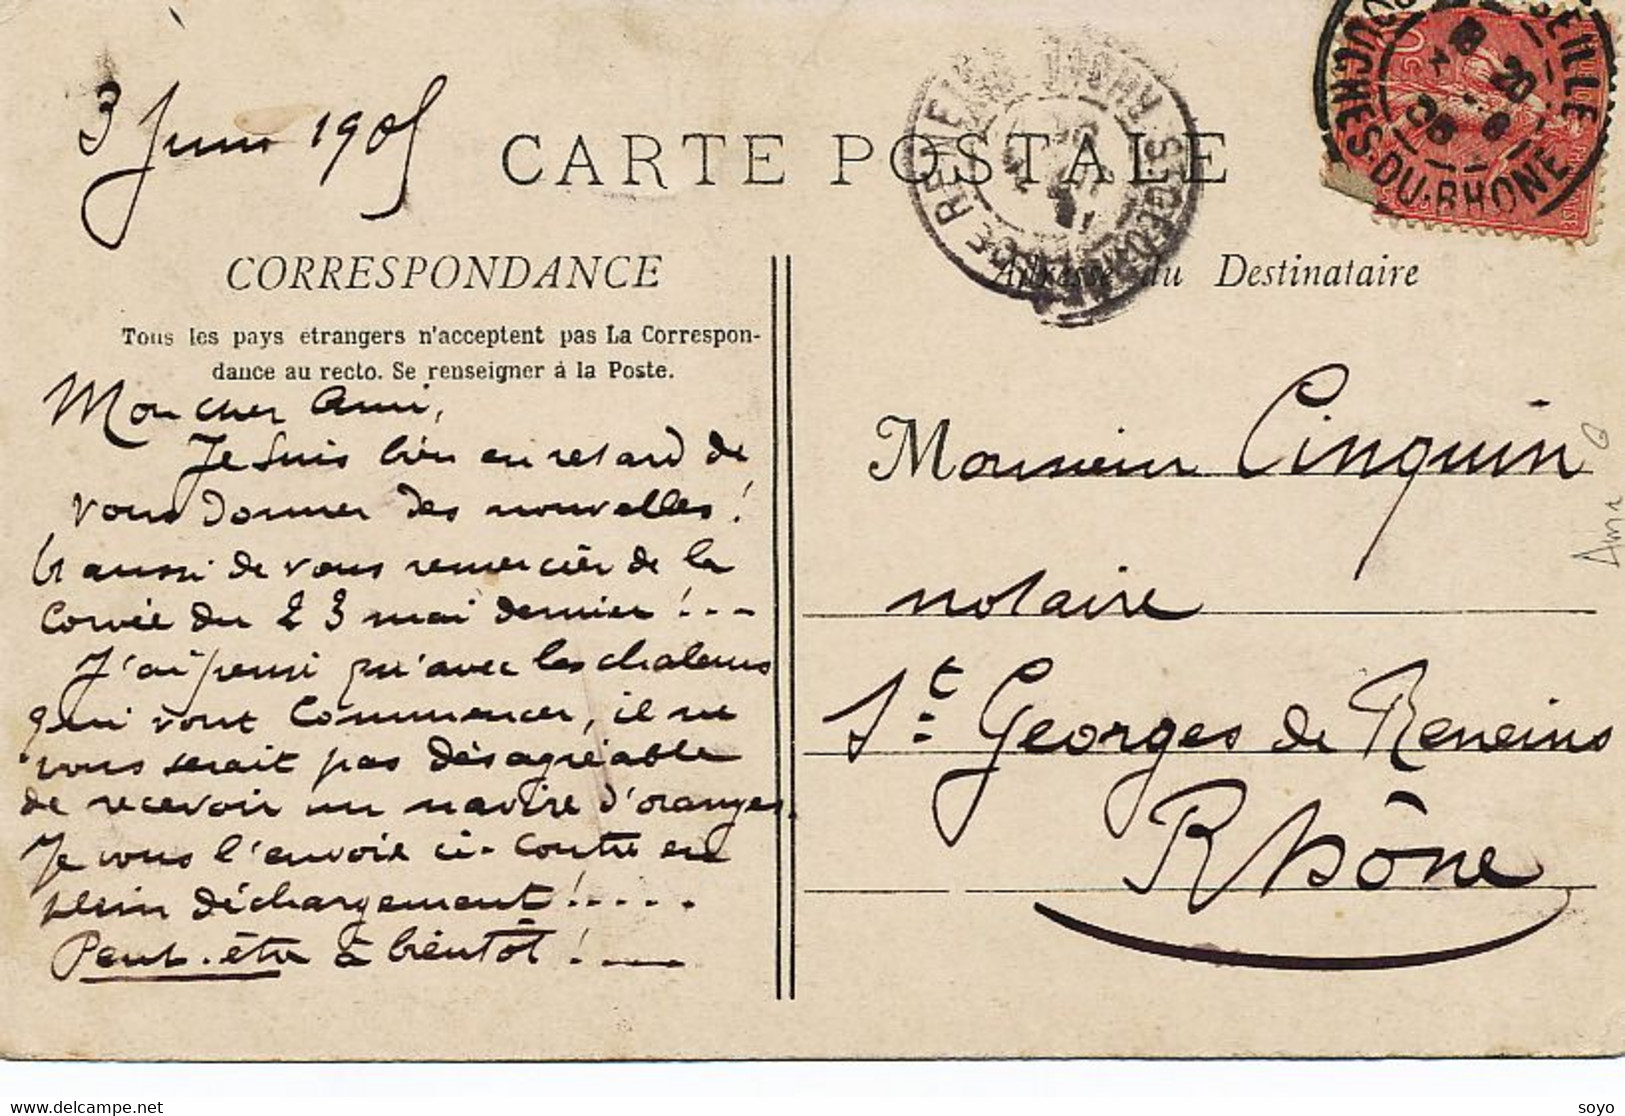 3 Juin 1905
CARTE POSTALE
CORRESPONDANCE
Tous les pays étrangers n'acceptent pas La Correspon-
dance au recto. Se renseigner à la Poste.
Mon cher Ami,
Je suis bien en retard de
vous donner des nouvelles !
Et aussi de vous remercier de la
Corvée du 23 mai dernier !...
J'ai pensé qu'avec les chaleurs
qui vont commencer, il ne
vous serait pas désagréable
de recevoir un navire d'oranges.
Je vous l'envoie ci-contre en
plein déchargement !.....
Peut-être à bientôt !
Adresse du Destinataire
Monsieur Cinquin
notaire
St Georges de Reneins
Rhône
BOUCHES-DU-RHONE
delcampe.net
soyo